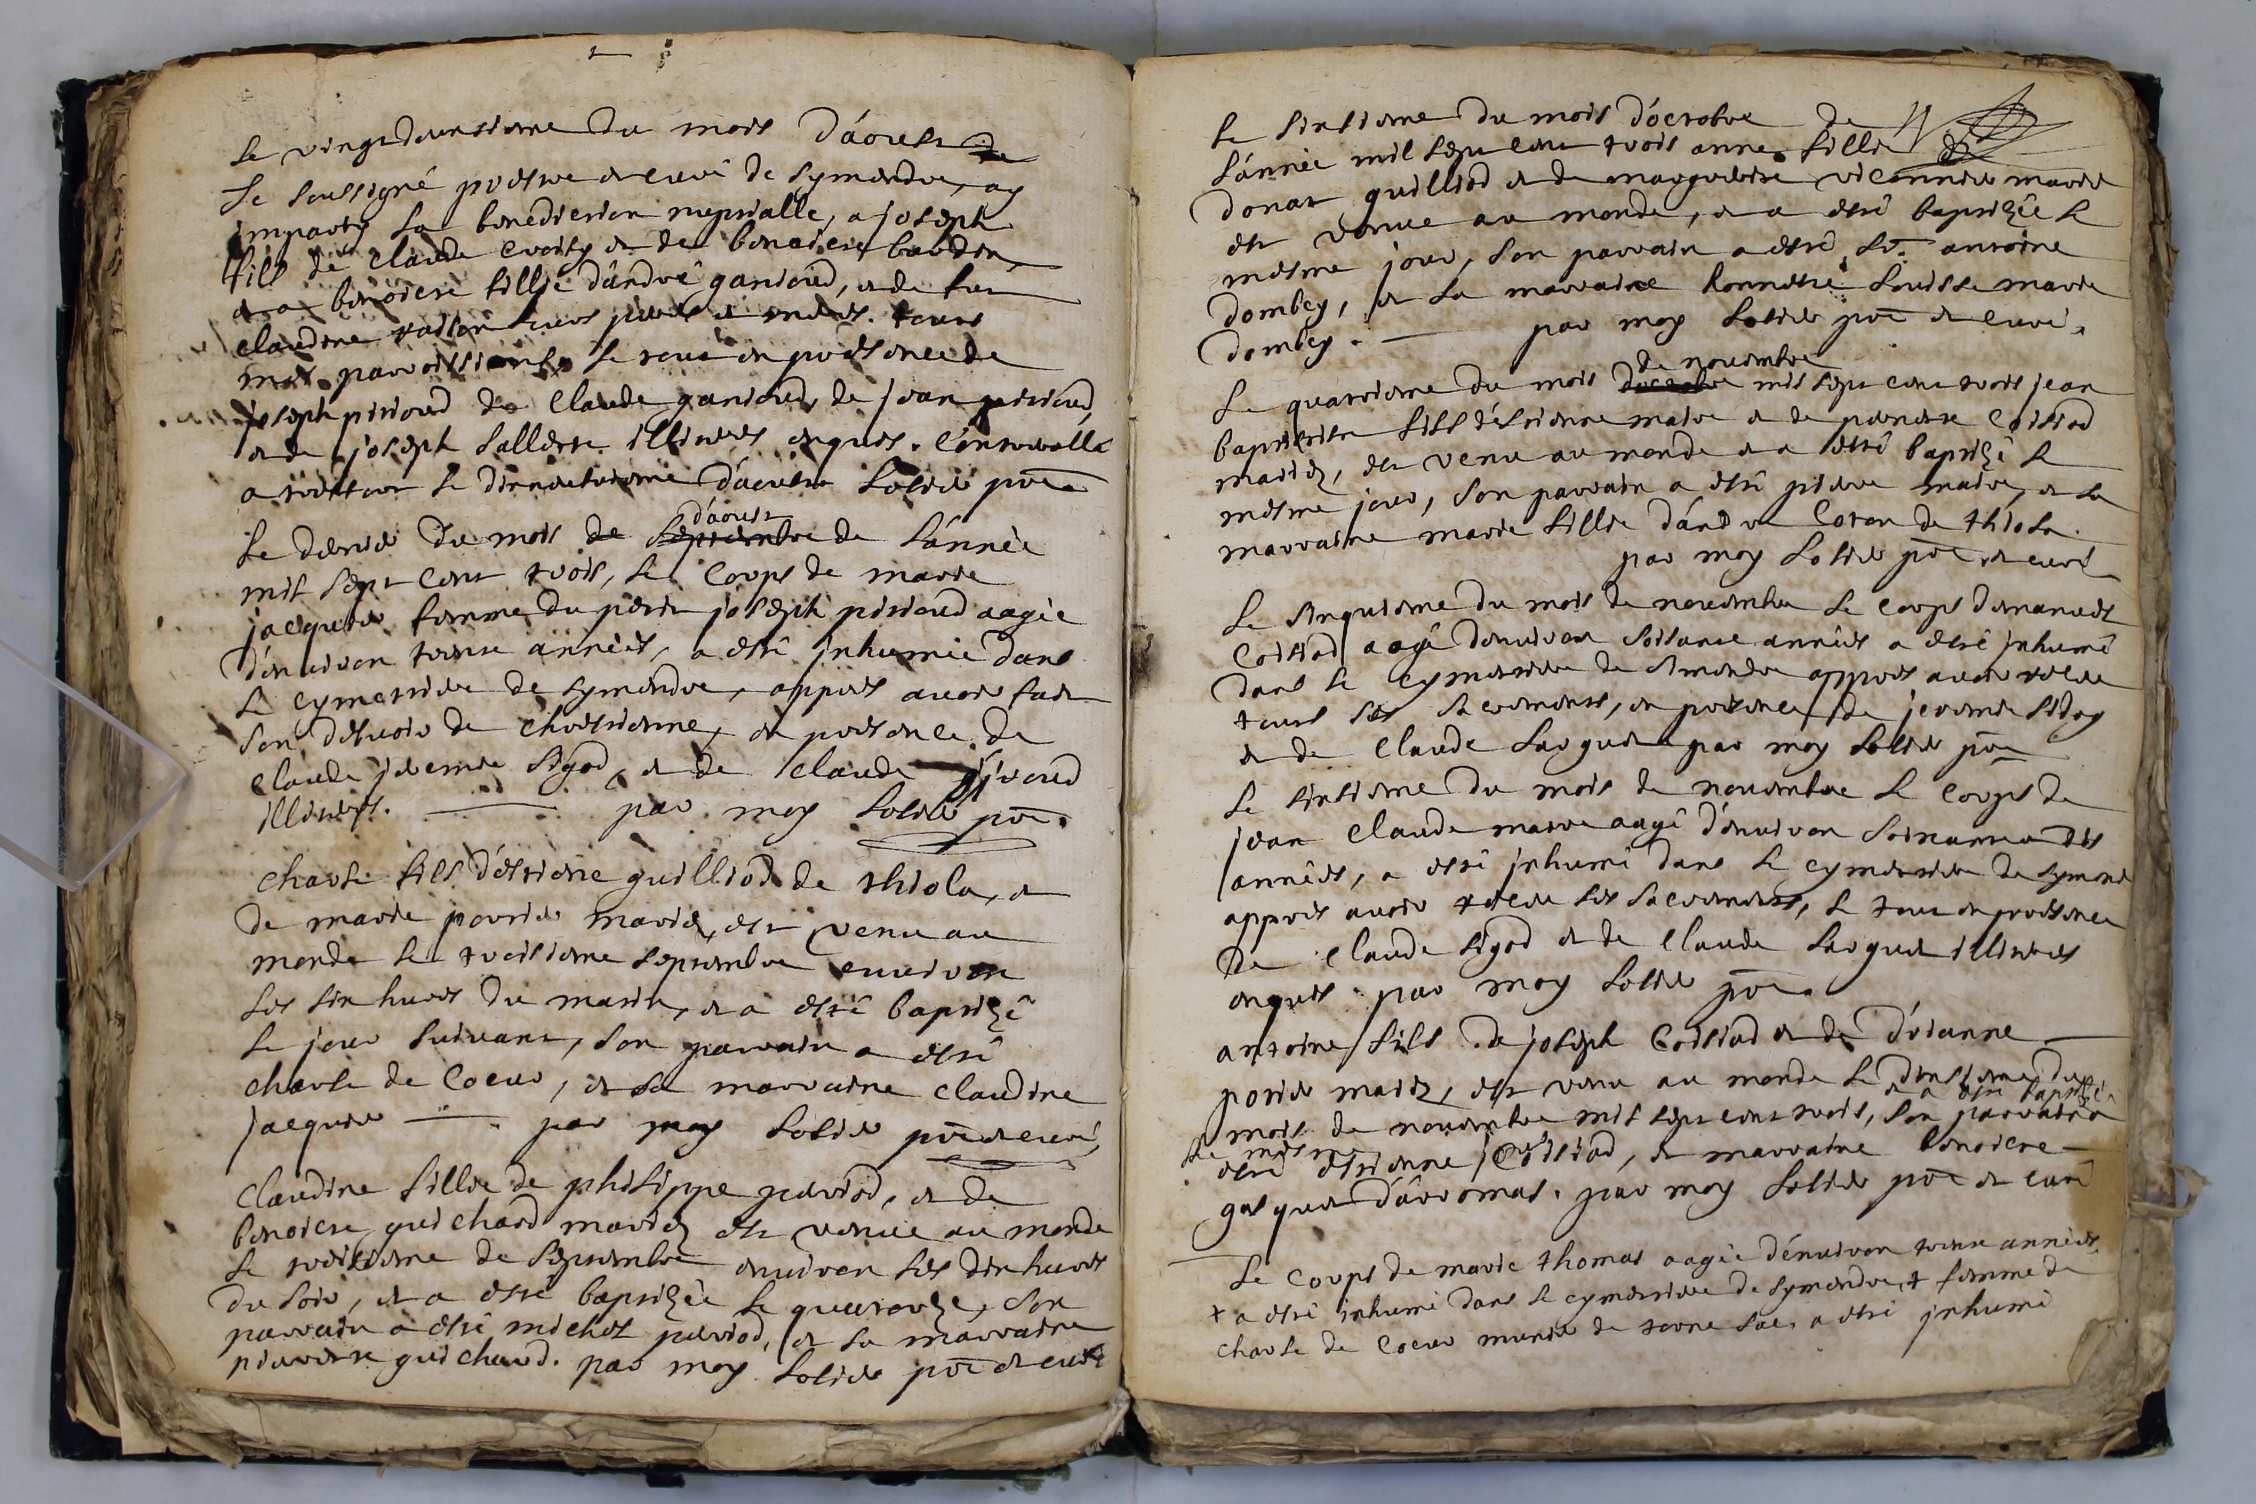 Le vingtdeuxsieme du mois d'aoust
Je soussigné prestre et curé de symandre, ay
imparty la benediction nuptialle, a joseph
fils de claude croity et de benoiste baudin,
et a benoiste fillie d'andréganioud, et de fut
claudine leurs peres et meres. tous
mes parroissiens, le tout en presence de
joseph pirioud de claude ganioud, de jean pirioud,
et de joseph illiteres enquis. contrerolle
a le dixneufvieme d'aoust Solier pre
Le dernier du mois d'aoust de l'année
mil sept cent trois, le corps de marie
jacquier femme du petit joseph pirioud aagée
d'enuiron trente années, a esté inhumée dans
le cymetiere de symandre, appres auoir fait
son deuoir de chrestienne, en presence de
claude jeremie sigod, et de claude
illiteres. par moy Solier pre.
charle fils d'estiene guilliod de thiola, et
de marie perrier mariez, est venu au
monde le troisieme septembre enuiron
les six heures du matin, et a esté baptizé
le jour suiuant, son parrain a esté
charle de coeur, et sa marraine claudine
jacquier par moy Solier pre et curé,
claudine fillie de philippe peuriod, et de
benoiste guichard mariez est venue au monde
le troisieme de septembre enuiron les dix heures
du soir, et a esté baptizée le quatorze, son
parrain a esté michel peuriod, et sa marraine
pierrette guichard. par moy Solier pre et curé
Le sixsieme du mois d'octobre de
l'année mil sept cent trois anne fillie de
donat guilliod et de marguerite mariez
est venue au monde, et a esté baptizée le
mesme jour, son parrain a esté Sr. antoine
dombey, et sa marraine honneste Louisse marie
dombey. par moy Solier pre et curé.
Le quatrieme du mois de nouembre mil sept cent trois jean
baptiste fils d'estienne maitre et de pierrette Coissiod
mariez, est venu au monde et a esté baptizé le
mesme jour, son parrain a esté pierre maitre, et sa
marraine marie fillie d'andre Coron de thiola.
par moy Solier pre et curé
Le sinquieme du mois de nouembre le corps d'emanuel
Coissiod aagé d'enuiron soisante années a esté inhumé
dans le cymetiere de simandre appres auoir receu
tous ses sacremens, en presence de jeremie sidoy
et de claude Larguet par moy Solier pre
Le sixsieme du mois de nouembre le corps de
jean claude maitre aagé d'enuiron soixante et dix
années, a esté inhumé dans le cymetiere de symand
appres auoir receu ses sacremens, le tout en presence
de claude sigod et de claude Larguet illiteres
enquis. par moy Solier pre.
antoine fils de joseph Coissiod et de d'rianne
perier mariez, est venu au monde le dixsieme du
et a esté baptizé
mois de nouembre mil sept cent trois, son parrain a
le mesme jour
esté estienne Coissiod, et marraine benoiste
gasquet d'arromas. par moy Solier pre et curé
Le corps de marie thomas aagée d'enuiron trente années
+ a esté inhumé dans le cymetiere de symandre, + femme de
charle de coeur munier de a esté inhumé